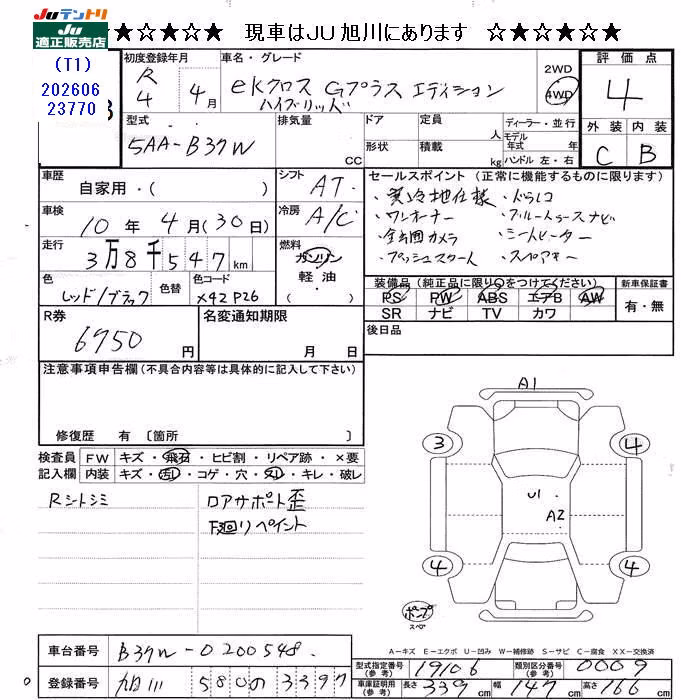 Juテントリ
JU適正販売店
★☆★☆★☆ 現車はJU旭川にあります ☆★☆★☆★
(T1)
202606
23770
初度登録年月
R4 4月
車名・グレード
eKクロス Gプラス エディション
ハイブリッド
2WD
4WD
評価点
4
外装 内装
C B
型式
5AA-B37W
排気量
CC
ドア
定員
人
形状
積載
kg
ディーラー・並行
モデル年式 年
ハンドル 左・右
車歴
自家用・( )
シフト
AT
車検
10年 4月(30日)
冷房
A/C
走行
3万8千547km
燃料
ガソリン
軽・油
( ・ )
色
レッド/ブラック
色替
色コード
X42P26
セールスポイント (正常に機能するものに限ります)
・寒冷地仕様 ・ドラレコ
・ワンオーナー ・ブルートゥースナビ
・全周囲カメラ ・シートヒーター
・プッシュスタート ・スペアキー
装備品 (純正品に限り○をつけてください)
PS PW ABS エアB AW
SR ナビ TV カワ
新車保証書
有・無
後日品
R券
6750円
名変通知期限
月 日
注意事項申告欄 (不具合内容等は具体的に記入して下さい)
修復歴 有 〔箇所 〕
検査員記入欄
FW キズ・飛石・ヒビ割・リペア跡・×要
内装 キズ・汚レ・コゲ・穴・スレ・キレ・破レ
Rシートシミ
ロアサポート歪
下廻りペイント
A1
3 4
U1
A2
4 4
ポンプ
スペア
A-キズ E-エクボ U-凹み W-補修跡 S-サビ C-腐食 XX-交換済
車台番号
B37W-0200548
登録番号
旭川 580の3397
型式指定番号 (参考)
19106
類別区分番号 (参考)
0009
車庫証明用 (参考)
長さ 339cm 幅 147cm 高さ 166cm